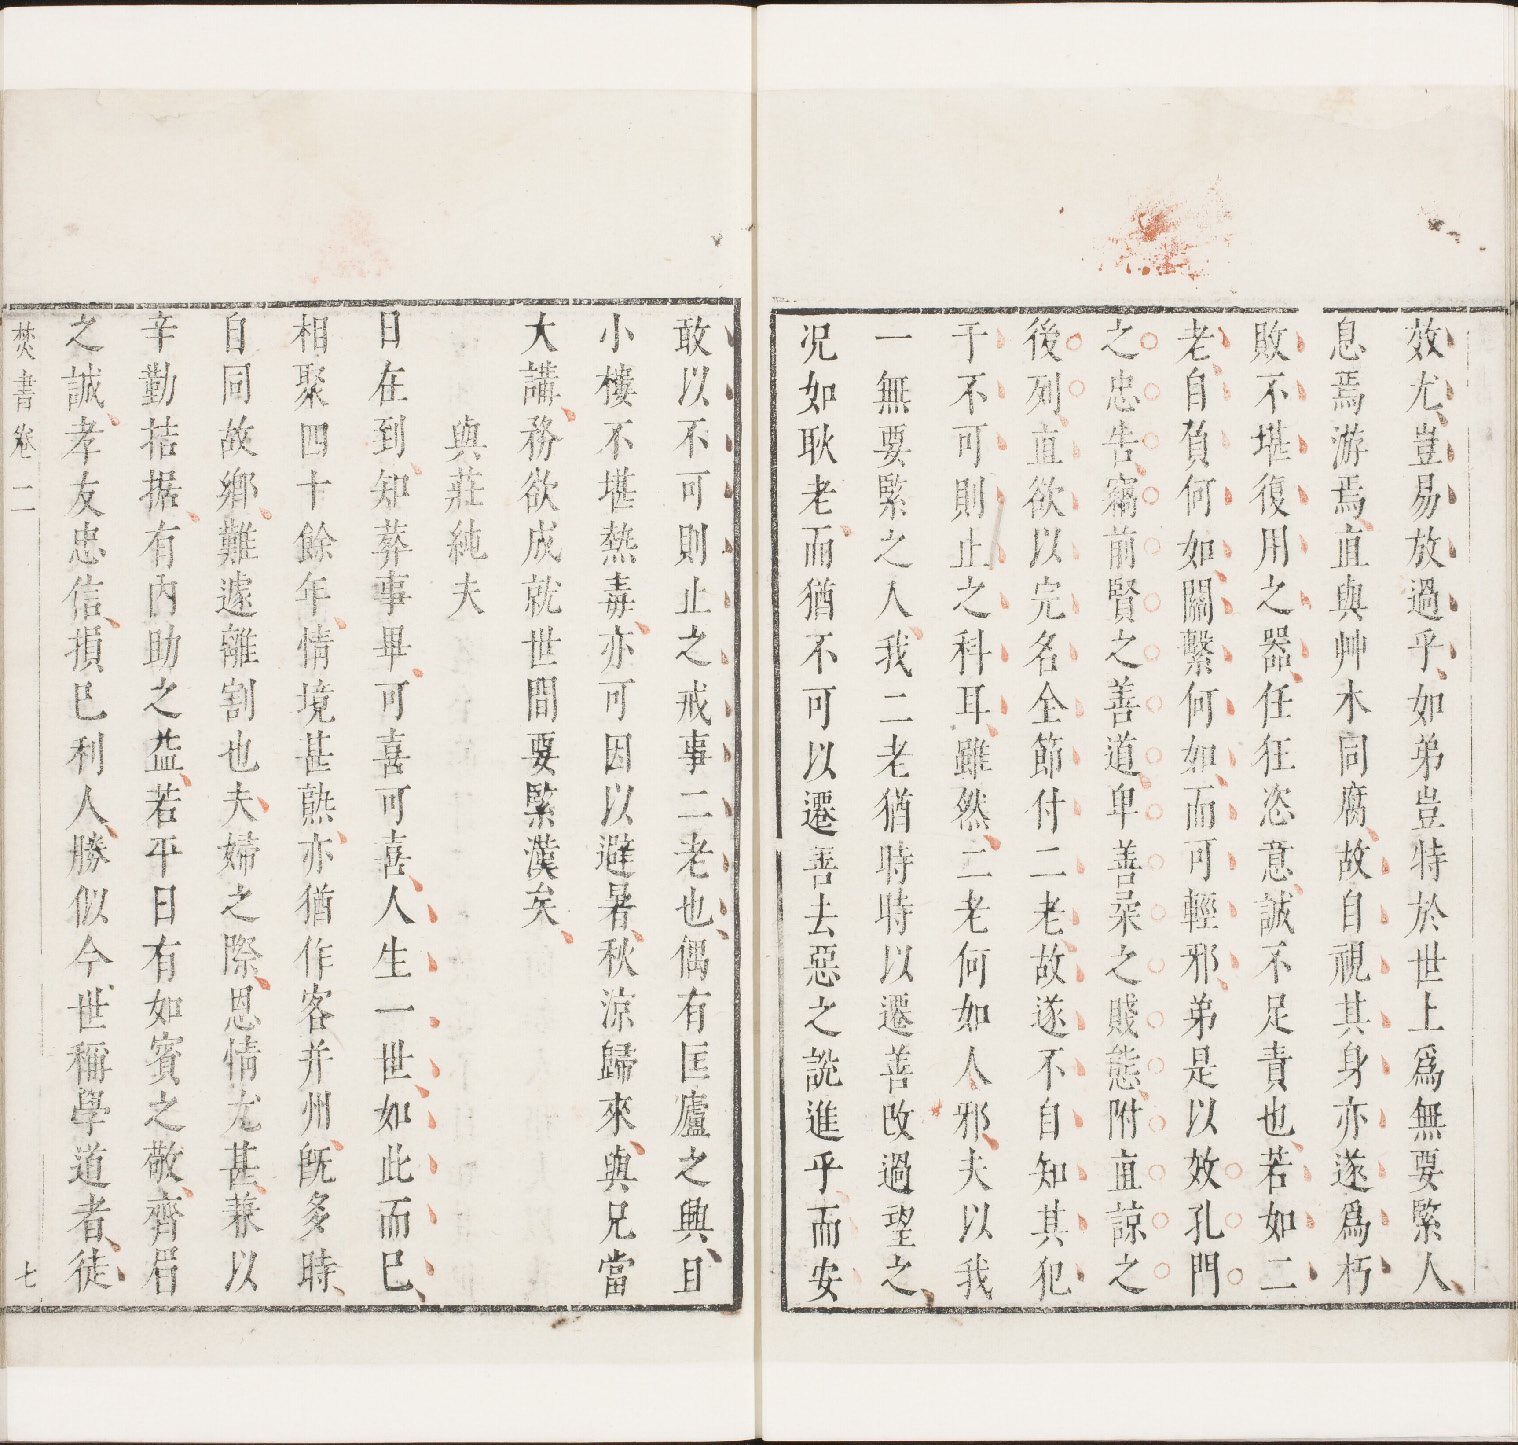 效尤豈易放過乎如弟豈特於世上爲無要緊人
息焉游焉直與艸木同腐故自視其身亦遂爲朽
敗不堪復用之器任狂恣意誠不足責也若如二
老自負何如關繫何如而可輕邪弟是以效孔門
之忠告竊前賢之善道卑善柔之賤態附直諒之
後列直欲以完名全節付二老故遂不自知其犯
于不可則止之科耳雖然二老何如人邪夫以我
一無要緊之人我二老猶時時以遷善改過望之
况如耿老而猶不可以遷善去惡之說進乎而安
敢以不可則止之戒事二老也偶有匡廬之興且
小樓不堪熱毒亦可因以避暑秋涼歸來與兄當
大講務欲成就世間要緊漢矣
與莊純夫
日在到知葬事畢可喜可喜人生一世如此而已
相聚四十餘年情境甚熟亦猶作客并州旣多時
自同故鄉難遽離割也夫婦之際恩情尤甚兼以
辛勤拮据有內助之益若平日有如賓之敬齊眉
之誠孝友忠信損已利人勝似今世稱學道者徒
焚書卷二
七